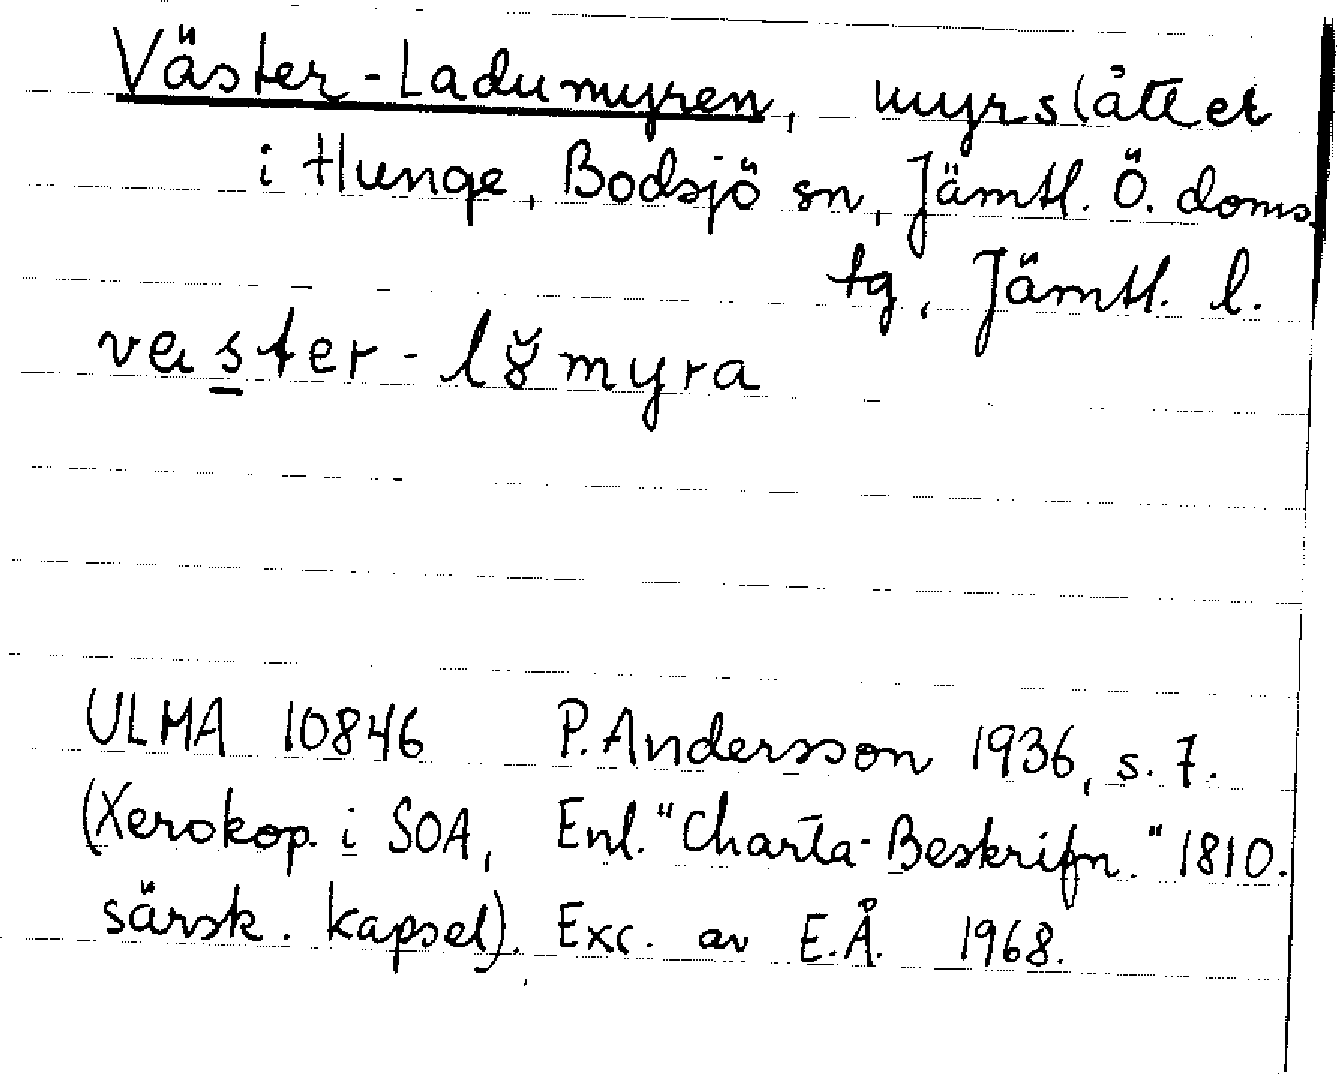 Väster-Ladumyren, myrslåttet
i Hunge, Bodsjö sn, Jämtl. Ö. doms.
tg, Jämtl. l.
väster-lo̽myra
ULMA 10846 P. Andersson 1936, s. 7.
(Xerokop. i SOA, Enl. "Charta-Beskrifn." 1810.
särsk. kapsel). Exc. av E.Å. 1968.